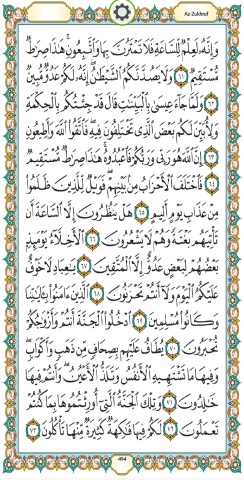 Az-Zukhruf
وَإِنَّهُۥ لَعِلْمٌ لِّلسَّاعَةِ فَلَا تَمْتَرُنَّ بِهَا وَٱتَّبِعُونِ هَٰذَا صِرَٰطٌ
مُّسْتَقِيمٌ ٦١ وَلَا يَصُدَّنَّكُمُ ٱلشَّيْطَٰنُ إِنَّهُۥ لَكُمْ عَدُوٌّ مُّبِينٌ
٦٢ وَلَمَّا جَآءَ عِيسَىٰ بِٱلْبَيِّنَٰتِ قَالَ قَدْ جِئْتُكُم بِٱلْحِكْمَةِ
وَلِأُبَيِّنَ لَكُم بَعْضَ ٱلَّذِى تَخْتَلِفُونَ فِيهِ فَٱتَّقُوا۟ ٱللَّهَ وَأَطِيعُونِ
٦٣ إِنَّ ٱللَّهَ هُوَ رَبِّى وَرَبُّكُمْ فَٱعْبُدُوهُ هَٰذَا صِرَٰطٌ مُّسْتَقِيمٌ
٦٤ فَٱخْتَلَفَ ٱلْأَحْزَابُ مِنۢ بَيْنِهِمْ فَوَيْلٌ لِّلَّذِينَ ظَلَمُوا۟
مِنْ عَذَابِ يَوْمٍ أَلِيمٍ ٦٥ هَلْ يَنظُرُونَ إِلَّا ٱلسَّاعَةَ أَن
تَأْتِيَهُم بَغْتَةً وَهُمْ لَا يَشْعُرُونَ ٦٦ ٱلْأَخِلَّآءُ يَوْمَئِذٍۭ
بَعْضُهُمْ لِبَعْضٍ عَدُوٌّ إِلَّا ٱلْمُتَّقِينَ ٦٧ يَٰعِبَادِ لَا خَوْفٌ
عَلَيْكُمُ ٱلْيَوْمَ وَلَآ أَنتُمْ تَحْزَنُونَ ٦٨ ٱلَّذِينَ ءَامَنُوا۟ بِـَٔايَٰتِنَا
وَكَانُوا۟ مُسْلِمِينَ ٦٩ ٱدْخُلُوا۟ ٱلْجَنَّةَ أَنتُمْ وَأَزْوَٰجُكُمْ
تُحْبَرُونَ ٧٠ يُطَافُ عَلَيْهِم بِصِحَافٍ مِّن ذَهَبٍ وَأَكْوَابٍ
وَفِيهَا مَا تَشْتَهِيهِ ٱلْأَنفُسُ وَتَلَذُّ ٱلْأَعْيُنُ وَأَنتُمْ فِيهَا
خَٰلِدُونَ ٧١ وَتِلْكَ ٱلْجَنَّةُ ٱلَّتِىٓ أُورِثْتُمُوهَا بِمَا كُنتُمْ
تَعْمَلُونَ ٧٢ لَكُمْ فِيهَا فَٰكِهَةٌ كَثِيرَةٌ مِّنْهَا تَأْكُلُونَ ٧٣
494